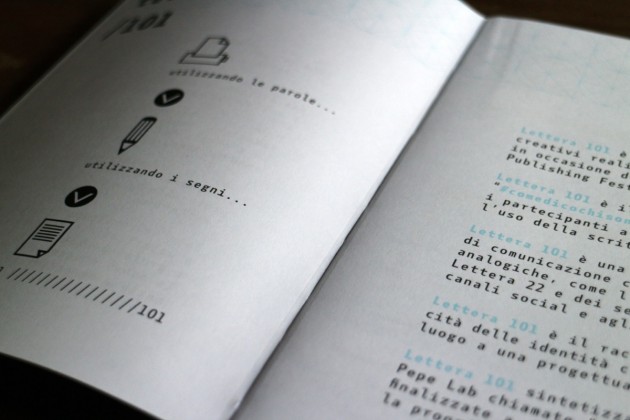 /101
utilizzando le parole...
utilizzando i segni...
////////////////101
Lettera 101 è
creativi reali
in occasione d
Publishing Fest
Lettera 101 è il
"#comedicochison
i partecipanti a
l'uso della scrit
Lettera 101 è una
di comunicazione c
analogiche, come l
Lettera 22 e dei se
canali social e agl
Lettera 101 è il rac
cità delle identità c
luogo a una progettua
Lettera 101 sintetizz
Pepe Lab chiamat
finalizzate a
la prog